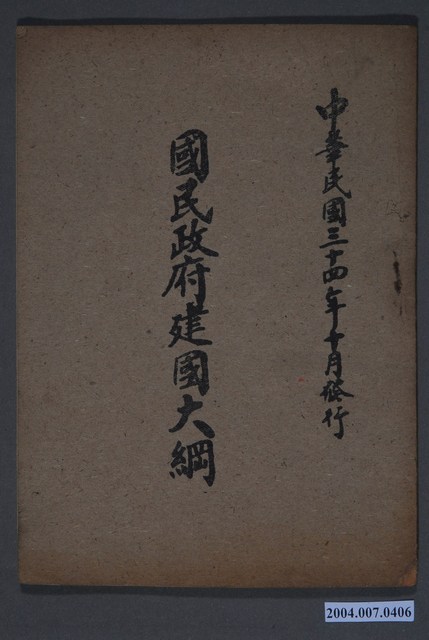 中華民國三十四年十月發行
國民政府建國大綱
2004.007.0406